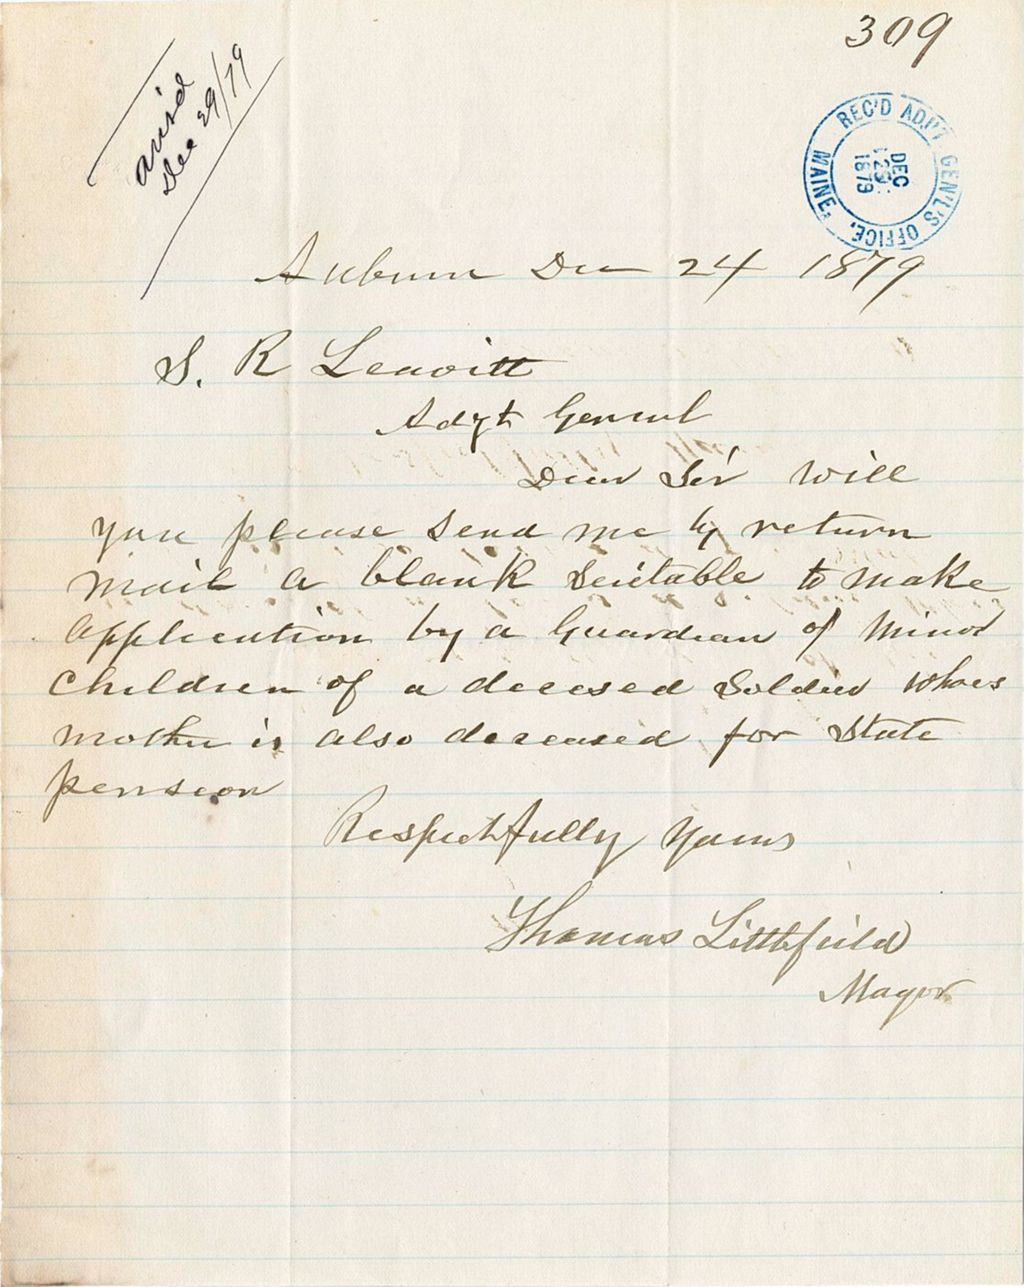 309
ansd
Dec 29/79
REC'D ADJ'T GEN'L'S OFFICE, MAINE.
DEC
1879
Auburn Dec 24 1879
S. R Leavitt
Adgt General
Dear Sir Will
you please send me by return
mail a blank suitable to make
application by a Guardian of Minor
Children of a decesed Soldier whoes
mother is also deceased for State
pension
Respectfully Yours
Thomas Littlefield
Mayor